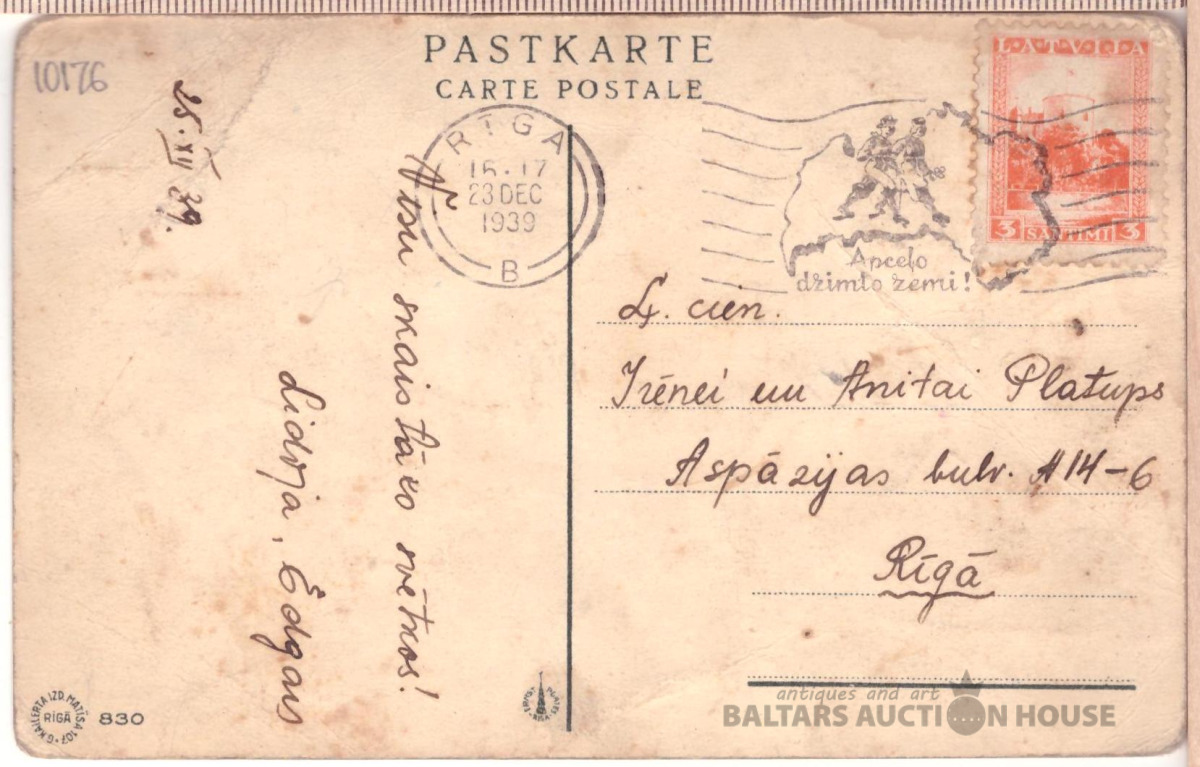 PASTKARTE
CARTE POSTALE
10176
25. XII 39.
RIGA
16.17
23 DEC
1939
B
LATVIJA
3 SANTIMI 3
Apceļo
dzimto zemi!
skaistāko svētkos!
Lidija, Edgars
Ļ. cien.
Irēnei un Anitai Platups
Aspāzijas bulv. 14-6
Rīgā
G. KAILERTA IZD. MATĪSA 107.
RĪGĀ
830
antiques and art
BALTARS AUCTION HOUSE